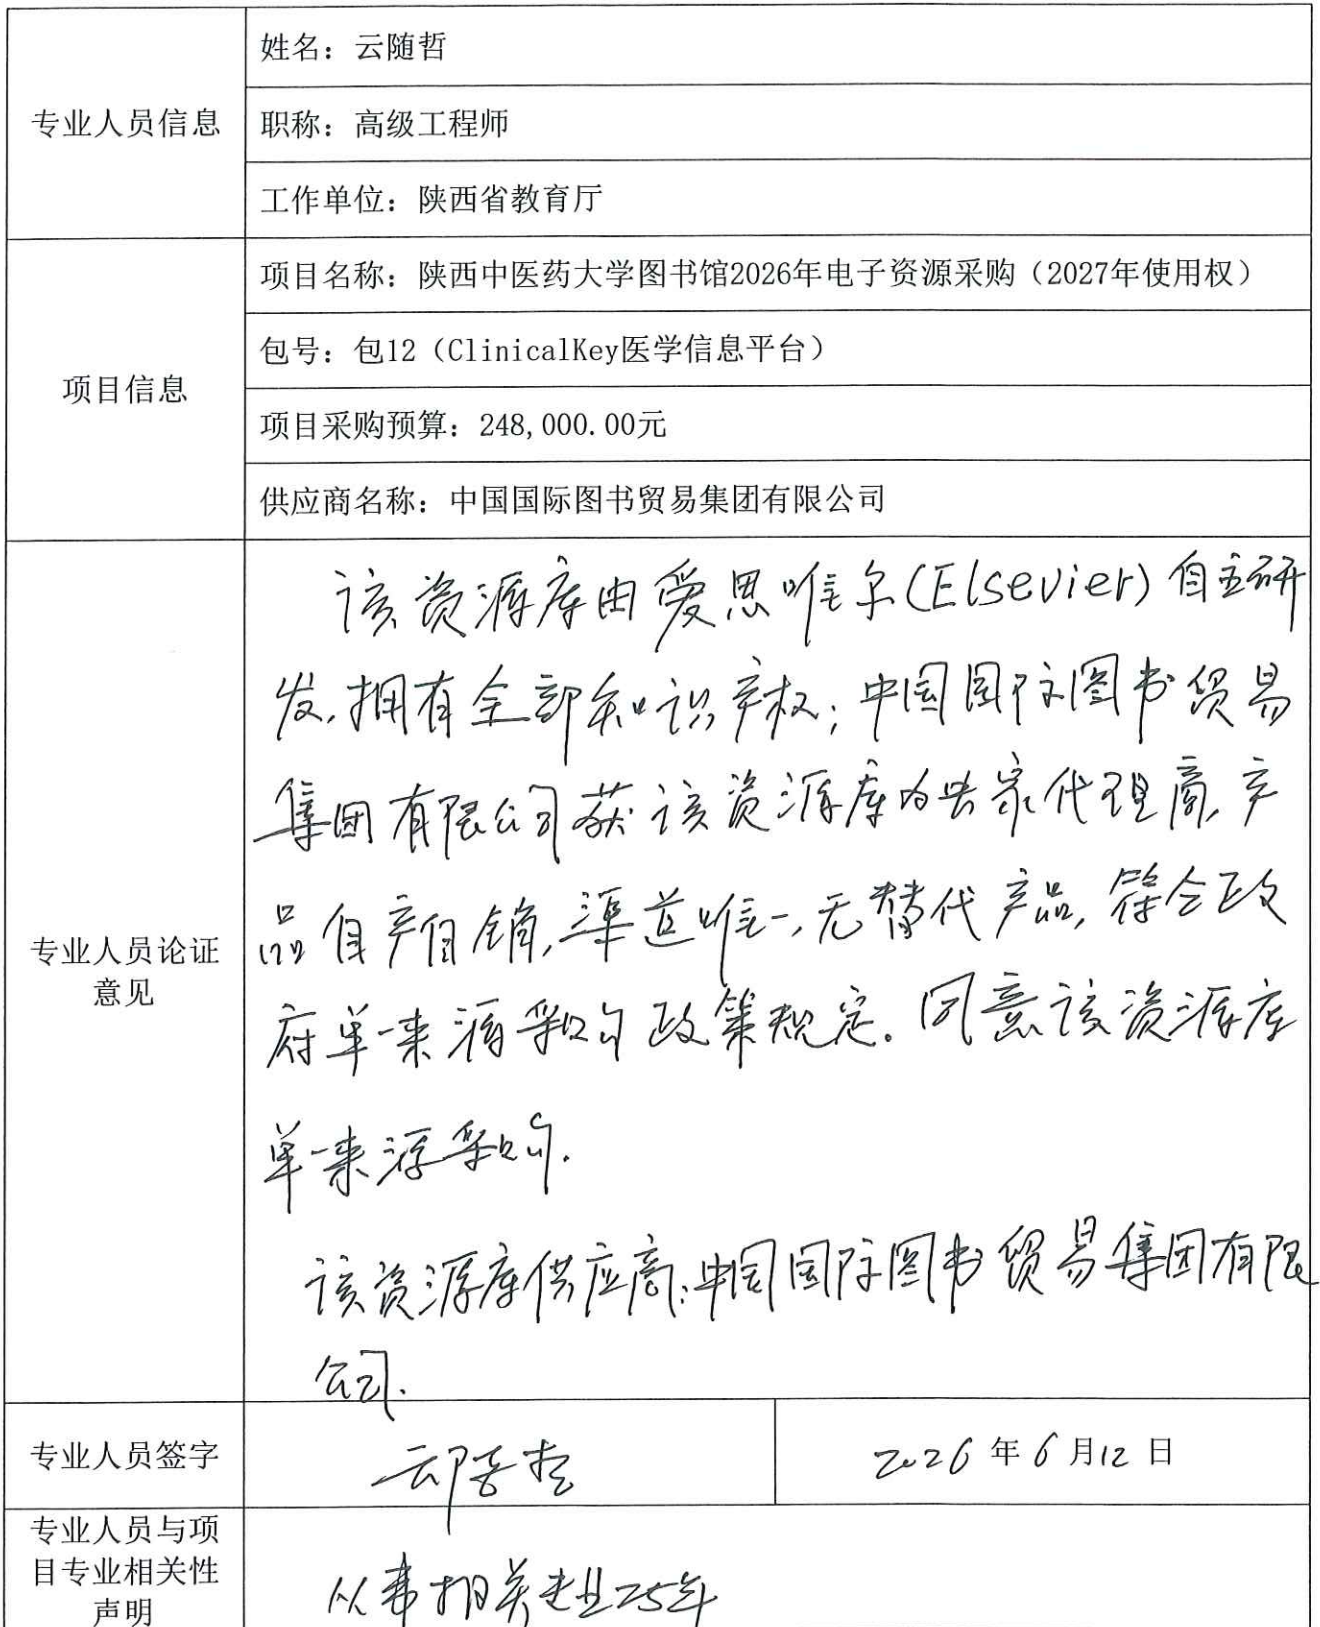 专业人员信息
姓名：云随哲
职称：高级工程师
工作单位：陕西省教育厅
项目信息
项目名称：陕西中医药大学图书馆2026年电子资源采购（2027年使用权）
包号：包12（ClinicalKey医学信息平台）
项目采购预算：248,000.00元
供应商名称：中国国际图书贸易集团有限公司
专业人员论证
意见
该资源库由爱思唯尔(Elsevier)自主研
发,拥有全部知识产权;中国国际图书贸易
集团有限公司获该资源库为独家代理商,产
品自产自销,渠道唯一,无替代产品,符合政
府单一来源采购政策规定。同意该资源库
单一来源采购.
该资源库供应商:中国国际图书贸易集团有限
公司.
专业人员签字
云随哲
2026年6月12日
专业人员与项
目专业相关性
声明
从事相关专业25年